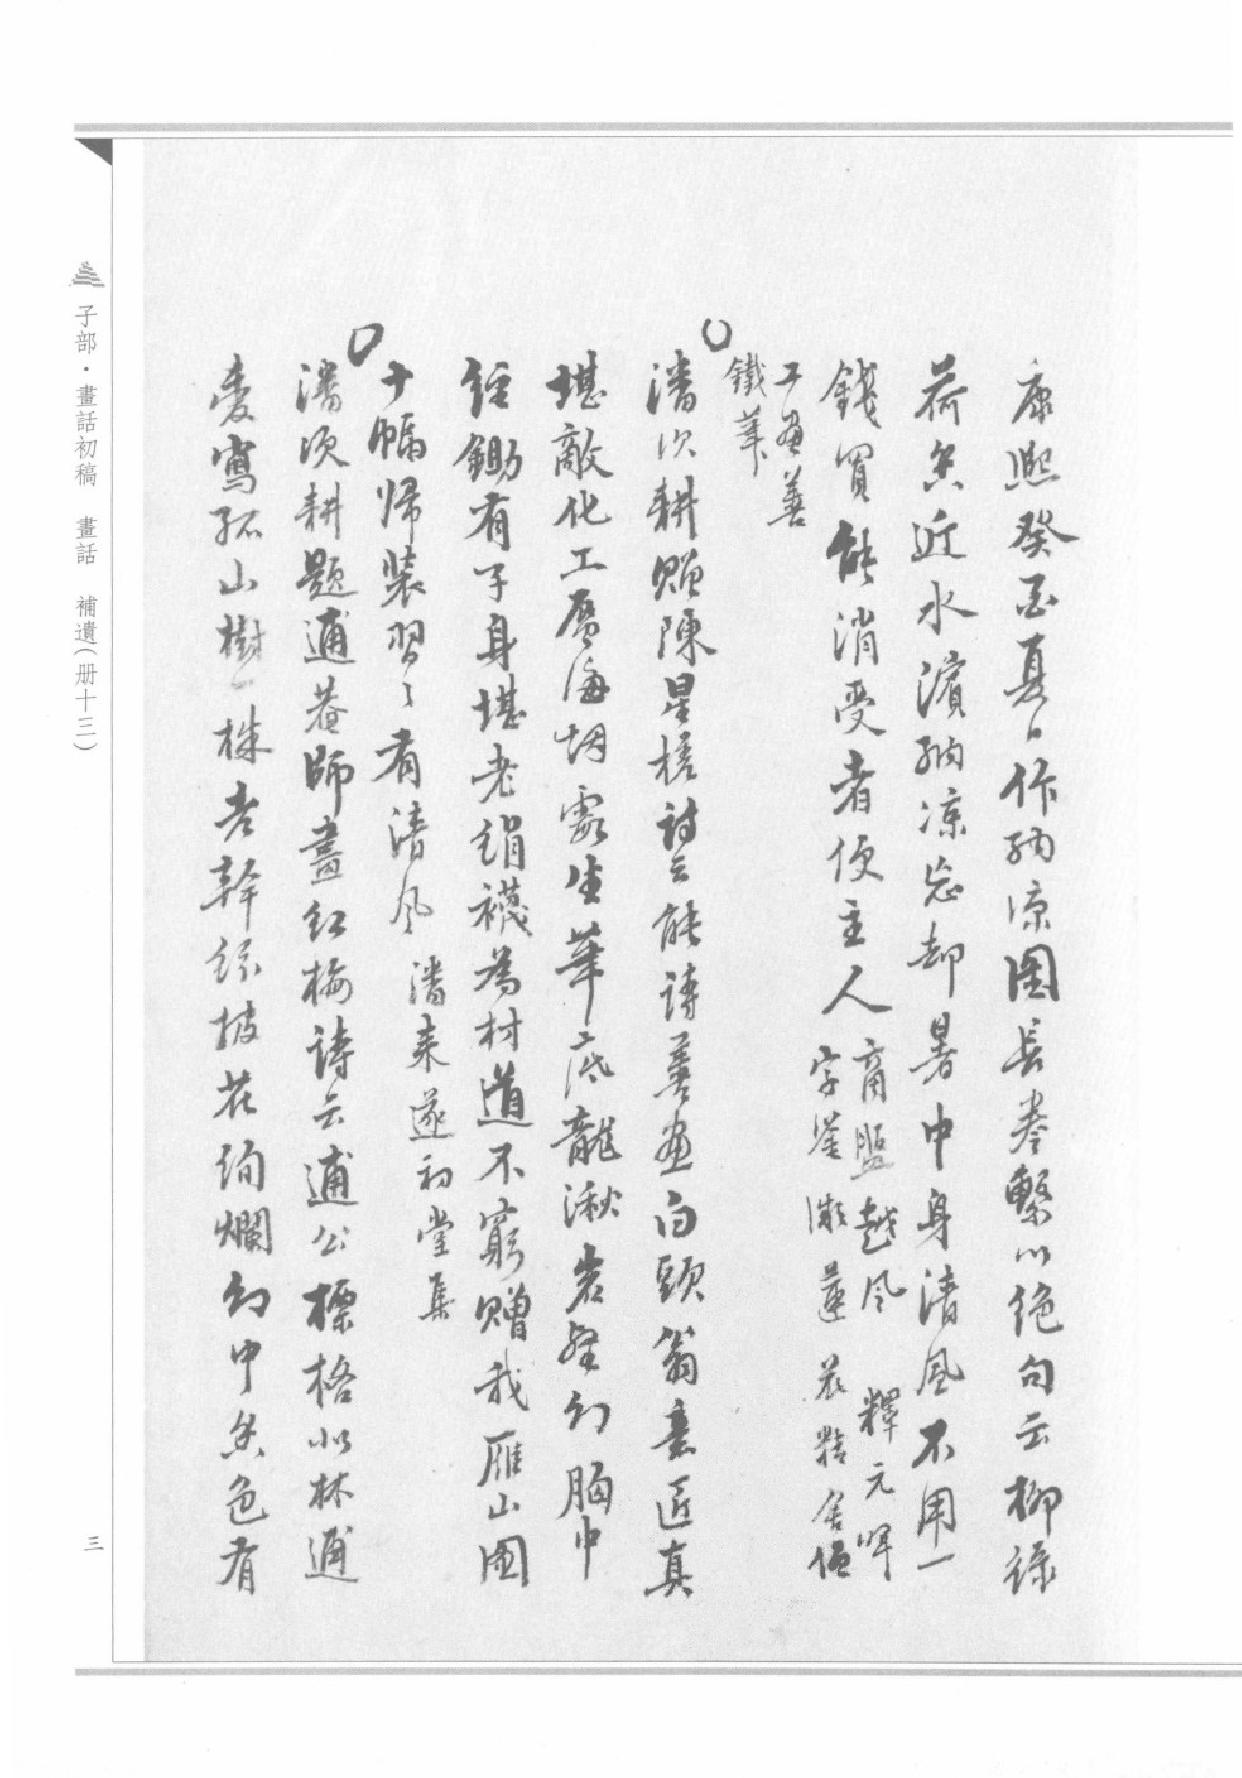 康熙癸酉夏日作納涼圖長卷繫以绝句云柳綠
荷香近水濱納凉忘却暑中身清風不用一
錢買能消受者便主人商盤越風 釋元暉
字 蓮衣 
工画善
鐵筆
潘次耕贈陳星 詩云能詩善画白頭翁意匠真
堪敵化工 海烟雲生筆底龍湫岩壑到胸中
經鋤有子身堪老絹襪為材道不窮贈我雁山圖
十幅帰装習〻有清风 潘耒遂初堂集
潘次耕題逋菴師畫紅梅詩云逋公標格似林逋
愛寫孤山樹一株老幹紛披花绚爛幻中香色有
子部·畫話初稿 畫話 補遺(册十三)
三